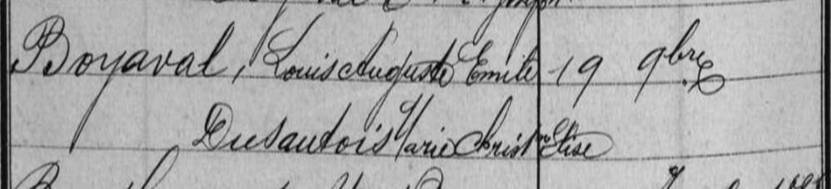 Boyaval, Louis Auguste Emile 19 9bre
Dusautois Marie Christne Elise